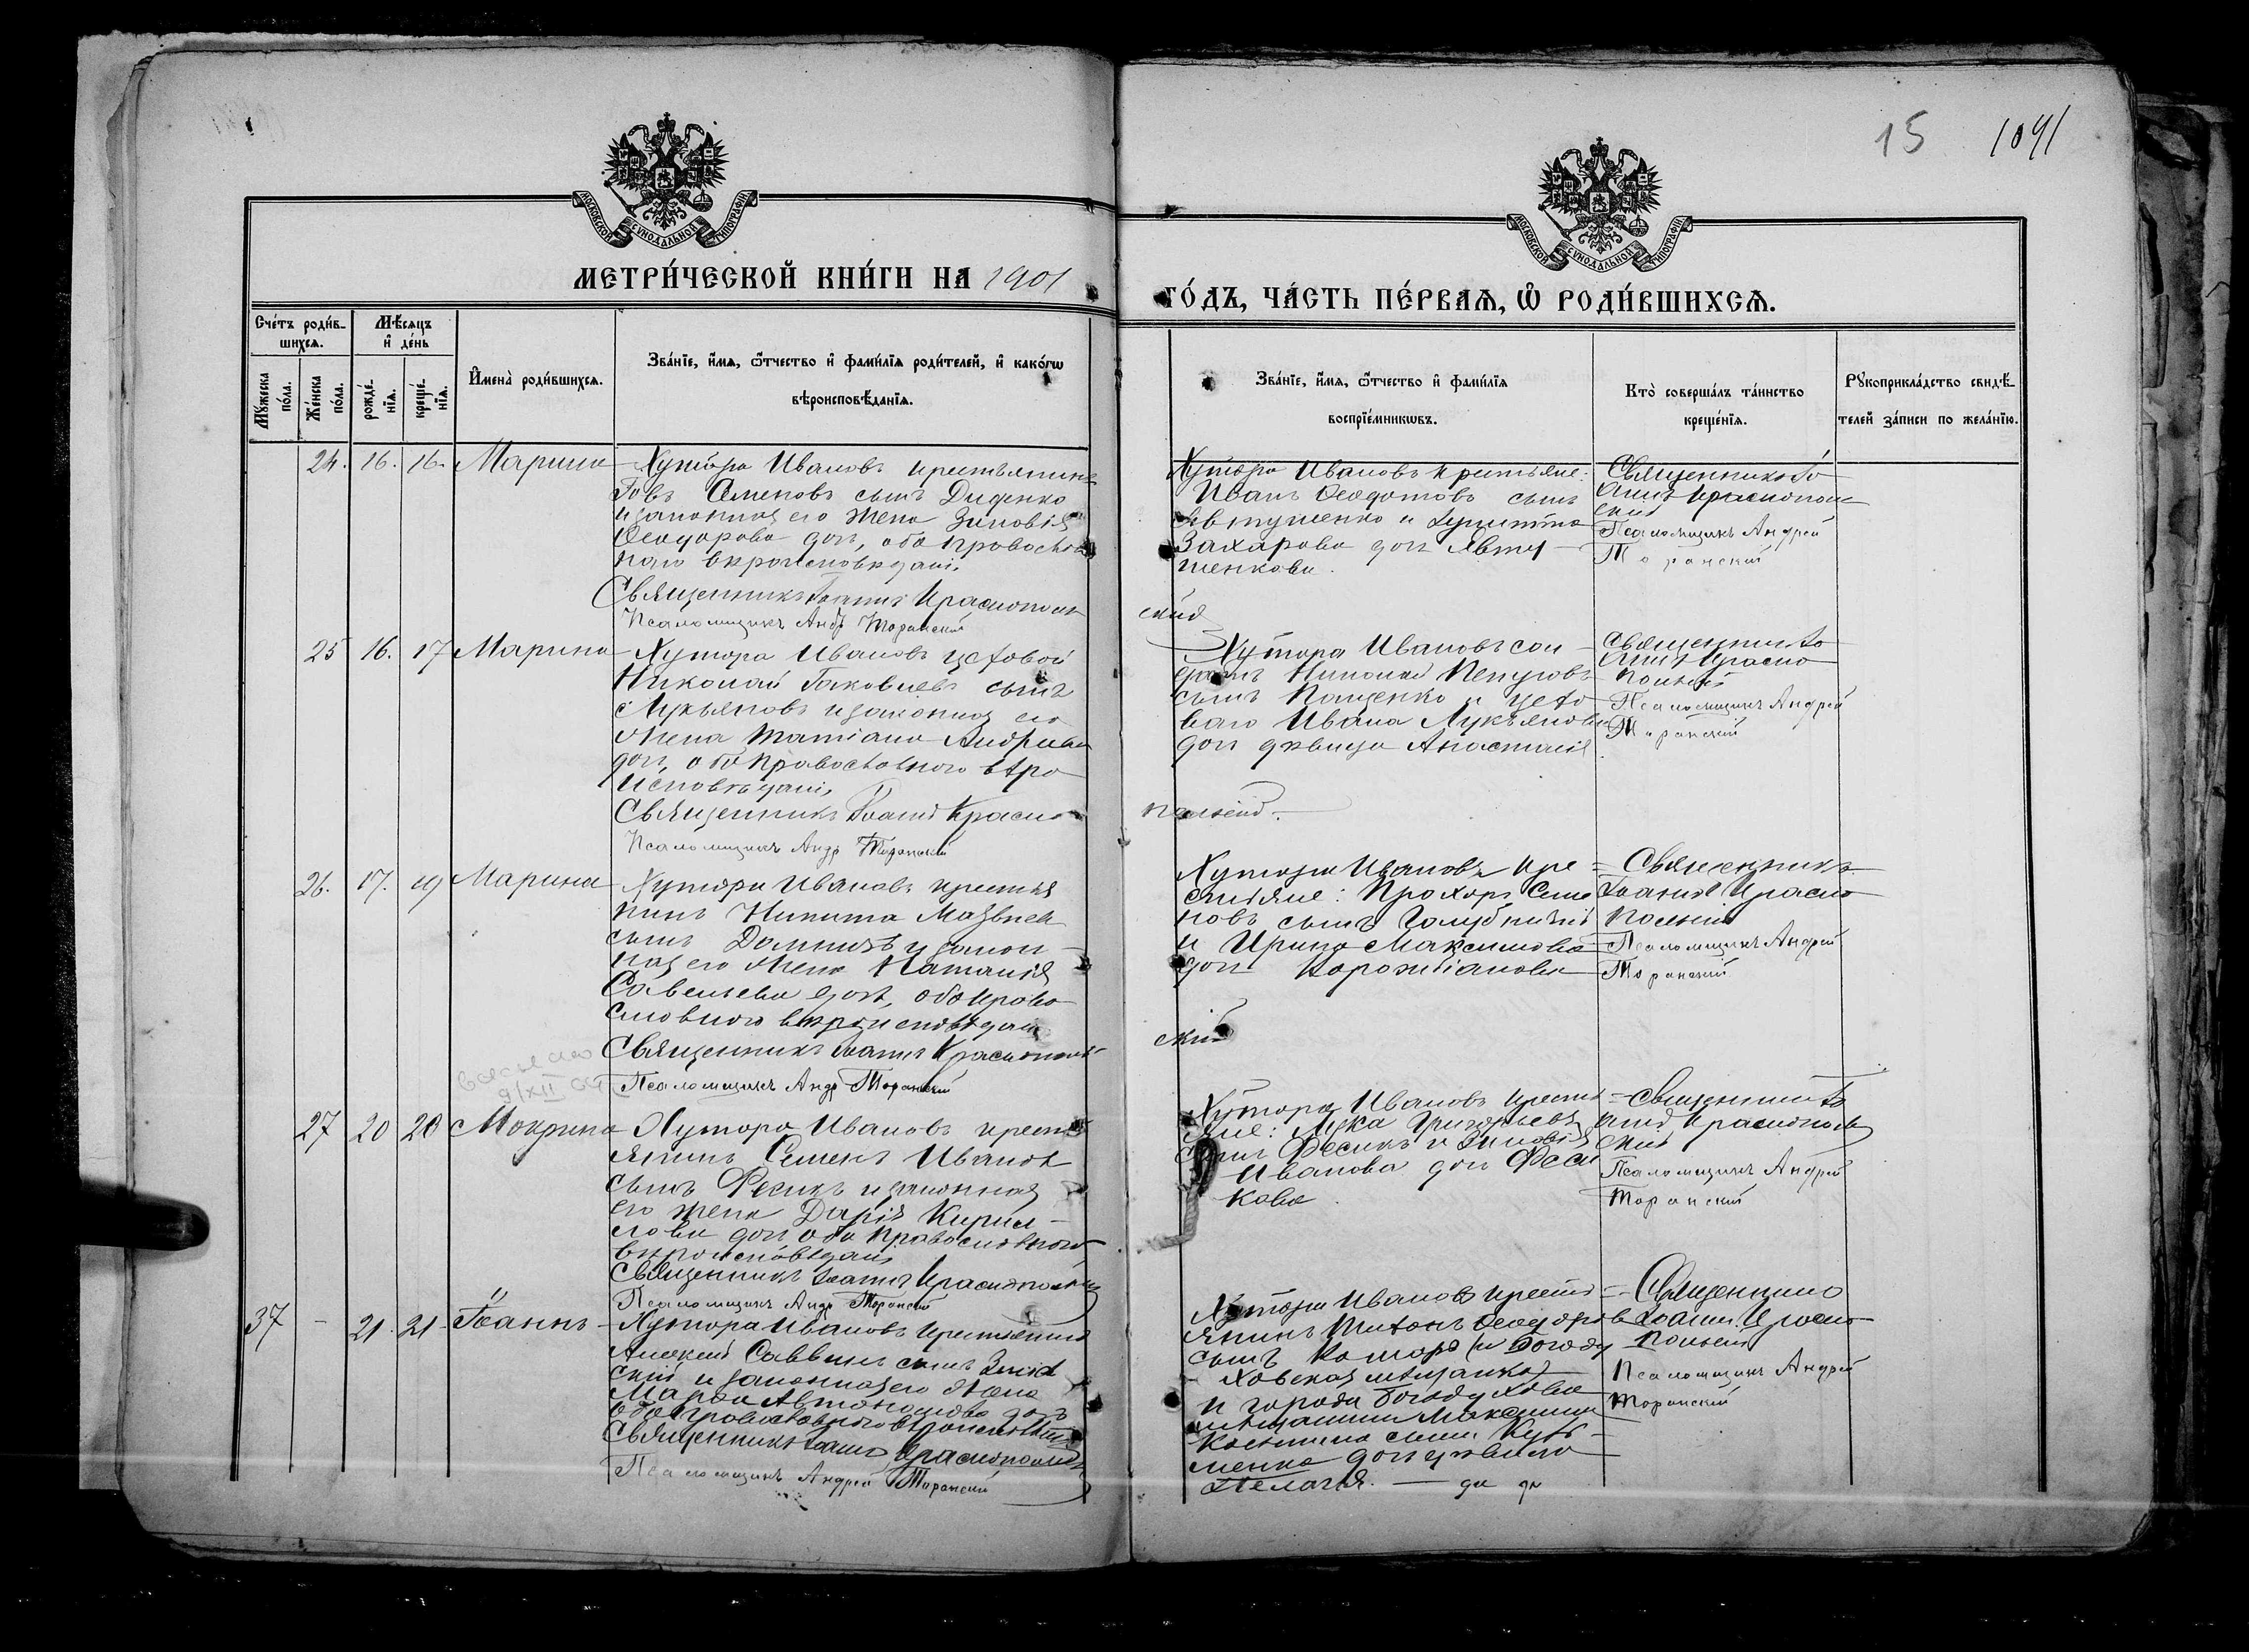 15 1091
МОСКОВСКОЙ СУНОДАЛЬНОЙ ТИПОГРАФІИ
МОСКОВСКОЙ СУНОДАЛЬНОЙ ТИПОГРАФІИ
МЕТРИ́ЧЕСКОЙ КНИ́ГИ НА 1901
ГО́ДЪ, ЧА́СТЬ ПЕ́РВАѦ, Ѡ РОДИ́ВШИХСѦ.
Сче́тъ роди́в-
шихсѧ.
Мꙋ́жеска
по́ла.
Же́нска
по́ла.
Мѣ́сѧцъ
и҆ де́нь
рожде́-
нїѧ.
креще́-
нїѧ.
И҆мена̀ роди́вшихсѧ.
Зва́нїе, и҆́мѧ, ѻ҆́тчество и҆ фами́лїѧ роди́телей, и҆ како́гѡ
вѣроисповѣ́данїѧ.
Зва́нїе, и҆́мѧ, ѻ҆́тчество и҆ фами́лїѧ
воспрїе́мникѡвъ.
Кто̀ соверша́лъ та́инство
креще́нїѧ.
Рꙋкоприкла́дство свидѣ́-
телей за́писи по жела́нїю.
24. 16. 16. Марина
Хутора Ивановъ крестьянинъ
Іовъ Семеновъ сынъ Диденко
и законная его жена Зиновія
Ѳеодорова доч, оба православ
наго вѣроисповѣданія
Священникъ Іоаннъ Краснополь
Псаломщикъ Андр Торанскій
Хутора Ивановъ крестьяне:
Иванъ Ѳеодотовъ сынъ
Явтушенко и
Захарова доч Явту-
шенкова.
скій
Священникъ Іо
аннъ Краснополь
скій
Псаломщикъ Андрей
Торанскій
25 16. 17 Марина
Хутора Ивановъ цеховой
Николай Іаковлевъ сынъ
Лукьяновъ и законная его
жена Татіана Андреева
доч, оба православного вѣро
исповѣданія
Священникъ Іоаннъ Красно
Псаломщикъ Андр Торанскій
Хутора Ивановъ сол
датъ Николай
сынъ Пащенко и цехо
ваго Ивана Лукьянова
доч дѣвица Анастасія
польскій.
Священникъ Іо
аннъ Красно
польскій
Псаломщикъ Андрей
Торанскій
26. 17. 19 Марина
Хутора Ивановъ крестья
нинъ Никита Матвѣев
сынъ и закон
ная его жена Наталія
Савельева доч, оба право
славного вѣроисповѣданія
Священникъ Іоаннъ Краснополь
Псаломщикъ Андр Торанскій
Хутора Ивановъ кре
стьяне: Прохоръ Симо
новъ сынъ Голубничій
и Ирина Максимова
доч
скій
Священникъ
Іоаннъ Красно
польскій
Псаломщикъ Андрей
Торанскій
9/XII
27 20 20 Мокрина
Хутора Ивановъ кресть
янинъ Семенъ Иванов
сынъ Фесикъ и законная
его жена Дарія Кирил-
лова доч оба православного
вѣроисповѣданія
Священникъ Іоаннъ Краснопольскій
Псаломщикъ Андр Торанскій
Хутора Ивановъ кресть
яне: Лука Григорьевъ
сынъ Фесикъ и Зиновія
Иванова доч Феси
кова.
Священникъ Іо
аннъ Краснополь
скій
Псаломщикъ Андрей
Торанскій
37 - 21. 21. Іоаннъ
Хутора Ивановъ крестьянинъ
Алексій Саввинъ сынъ
скій и законная его жена
Марѳа Автономова доч
оба православного вѣроисповѣд
Священникъ Іоаннъ Краснопольскій
Псаломщикъ Андрей Торанскій
Хутора Ивановъ кресть
янинъ Тихонъ Ѳеодоров
сынъ
ховская мѣщанка)
и города Богодухова
мѣщанина Максима
доч дѣвица
Пелагія.
Священникъ
Іоаннъ Красно
польскій
Псаломщикъ Андрей
Торанскій